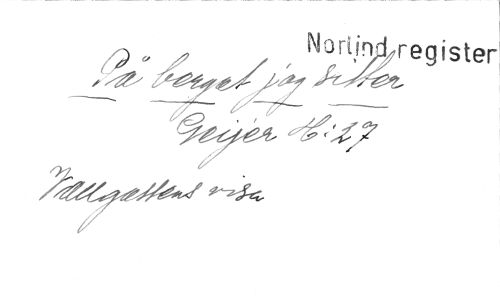 Norlind register
På berget jag sitter
Geijer H:27
Vallgossens visa